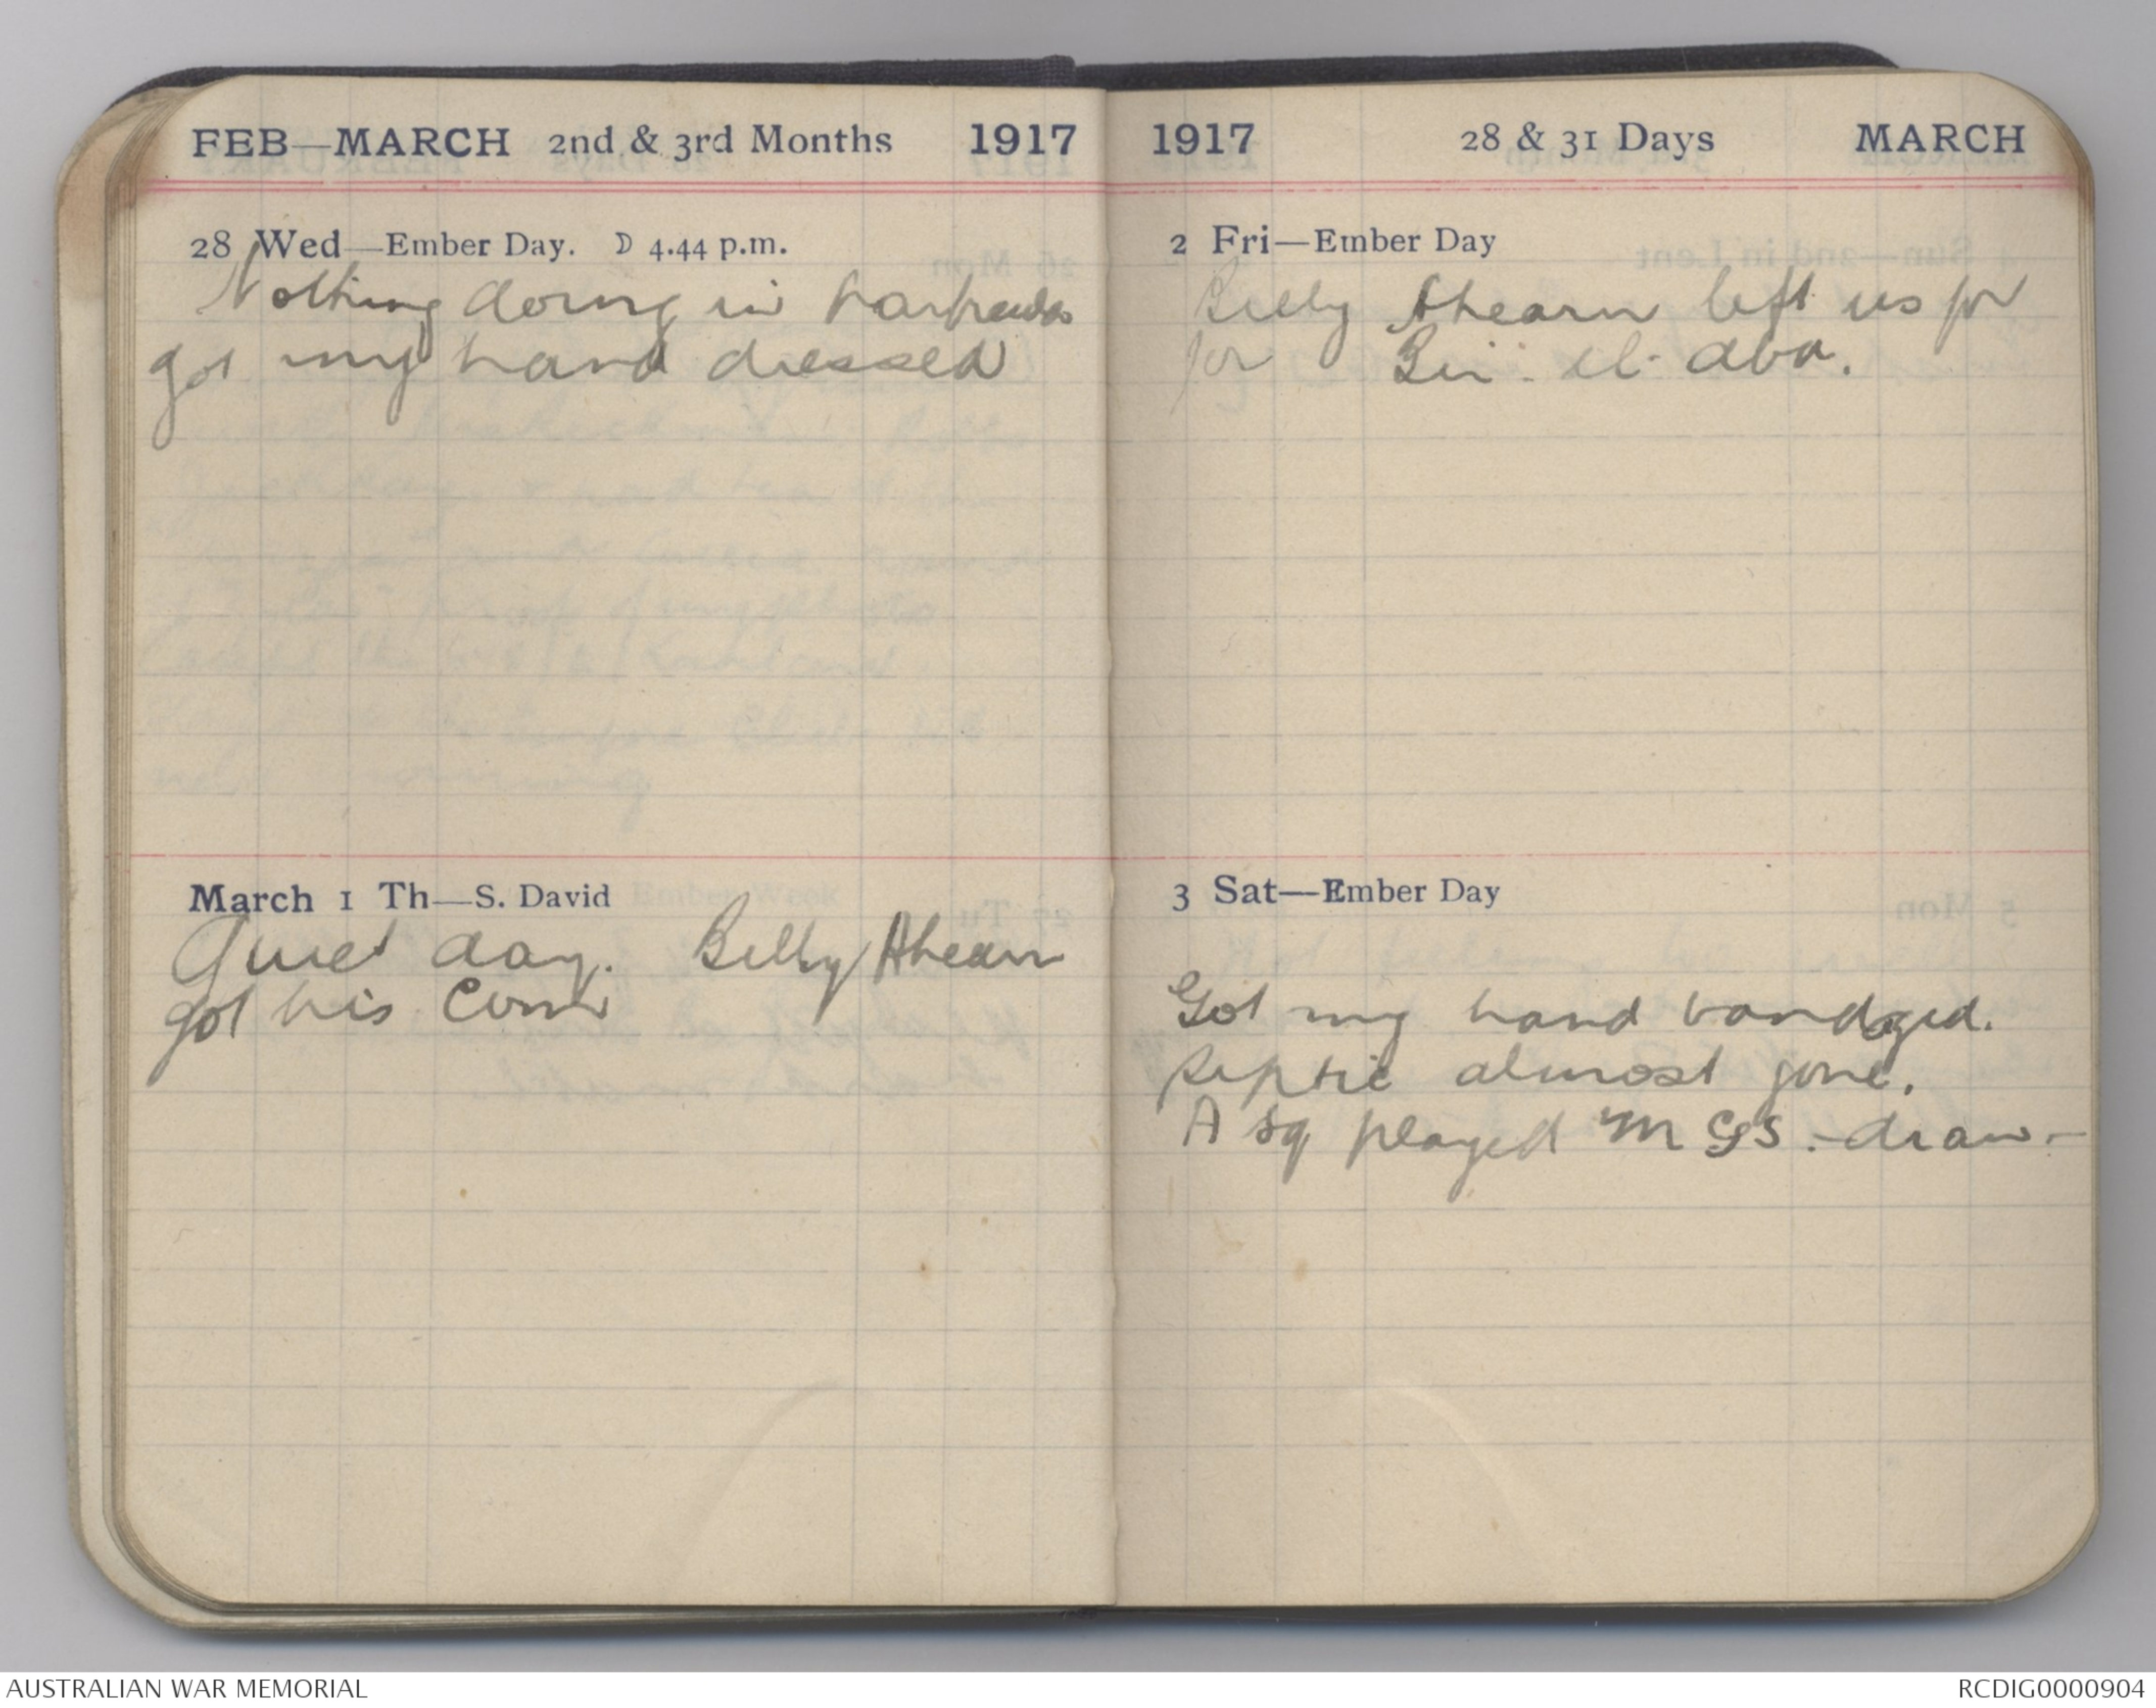 FEB—MARCH 2nd & 3rd Months 1917
28 Wed—Ember Day. ☽ 4.44 p.m.
Nothing doing in
got my hand dressed
March 1 Th—S. David
Quiet day. Billy Ahearn
got his Com
1917 28 & 31 Days MARCH
2 Fri—Ember Day
Billy Ahearn left us for
for Bir-el-abd.
3 Sat—Ember Day
Got my hand bandaged.
Septic almost gone.
A Sq played M G S. - draw -
AUSTRALIAN WAR MEMORIAL
RCDIG0000904